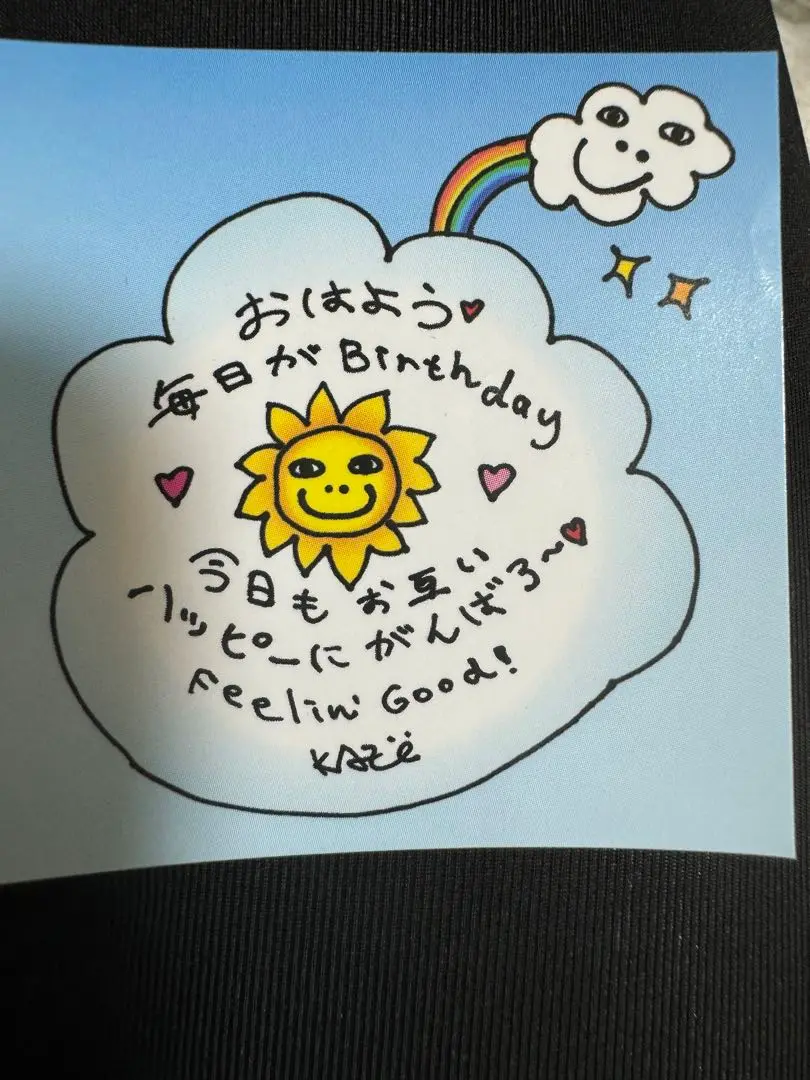 おはよう
毎日がBirthday
今日もお互い
ハッピーにがんばろ〜
Feelin' Good!
KAZE